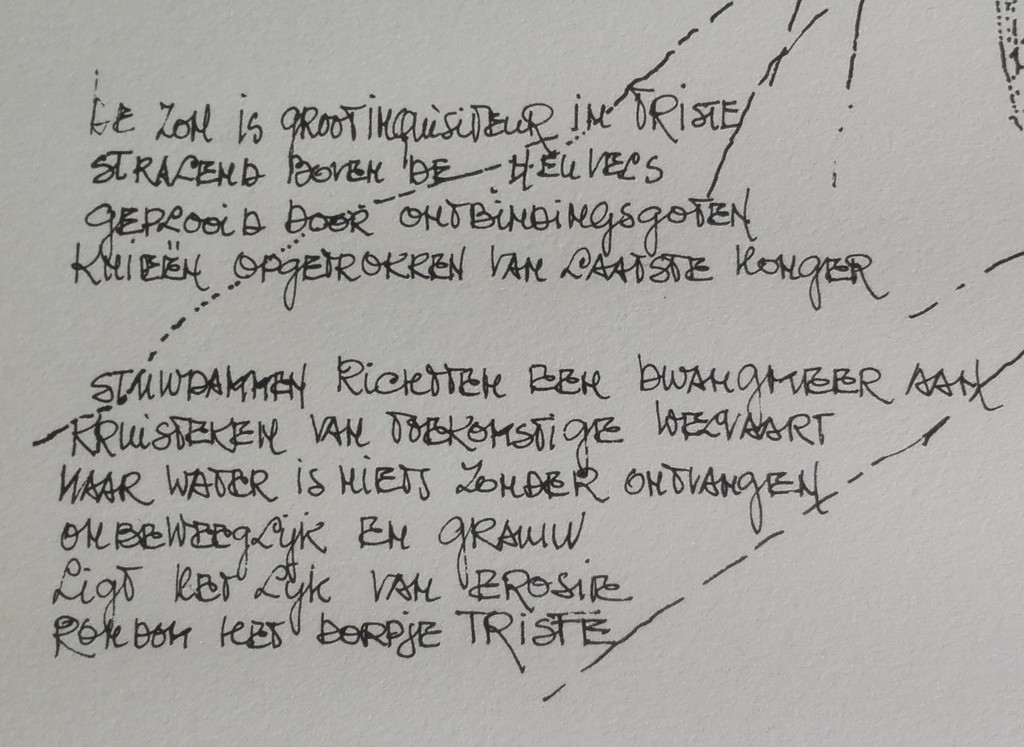 DE ZON IS GROOTINQUISITEUR IN TRISTE
STRALEND BOVEN DE HEUVELS
GEPLOOID DOOR ONTBINDINGSGOTEN
KNIEËN OPGETROKKEN VAN LAATSTE HONGER
STUWDAMMEN RICHTTEN EEN DWANGMEER AAN
KRUISTEKEN VAN TOEKOMSTIGE WELVAART
MAAR WATER IS NIETS ZONDER ONTVANGEN
ONBEWEEGLIJK EN GRAUW
LIGT HET LIJK VAN EROSIE
RONDOM HET DORPJE TRISTE